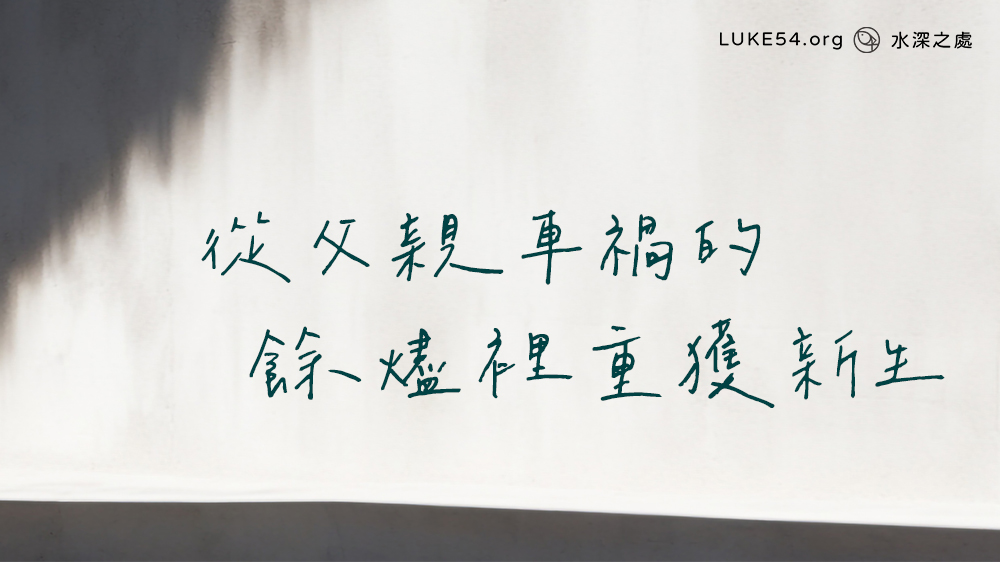 LUKE54.org 水深之處
從父親車禍的
餘燼裡重獲新生